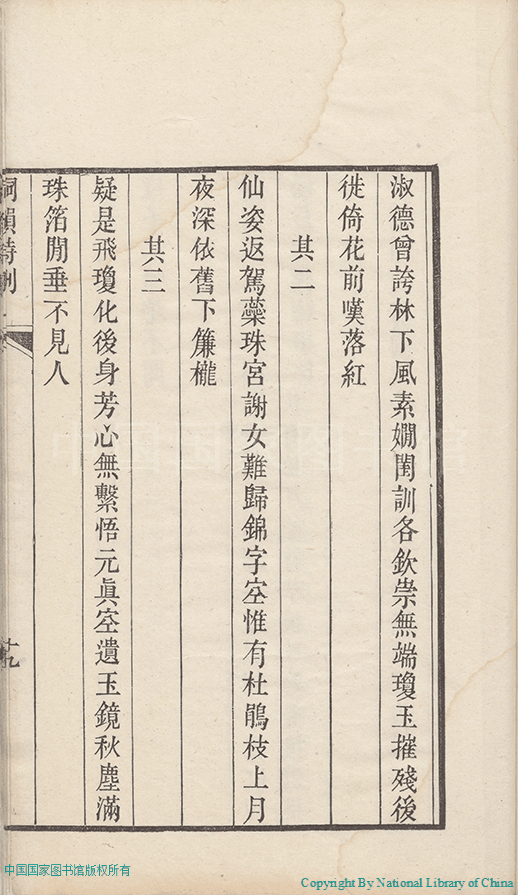 淑德曾誇林下風素嫺閨訓各欽崇無端瓊玉摧殘後
徙倚花前嘆落紅
其二
仙姿返駕蘂珠宮謝女難歸錦字空惟有杜鵑枝上月
夜深依舊下簾櫳
其三
疑是飛瓊化後身芳心無繫悟元眞空遺玉鏡秋塵滿
珠箔閒垂不見人
十九
中国国家图书馆版权所有
Copyright By National Library of China